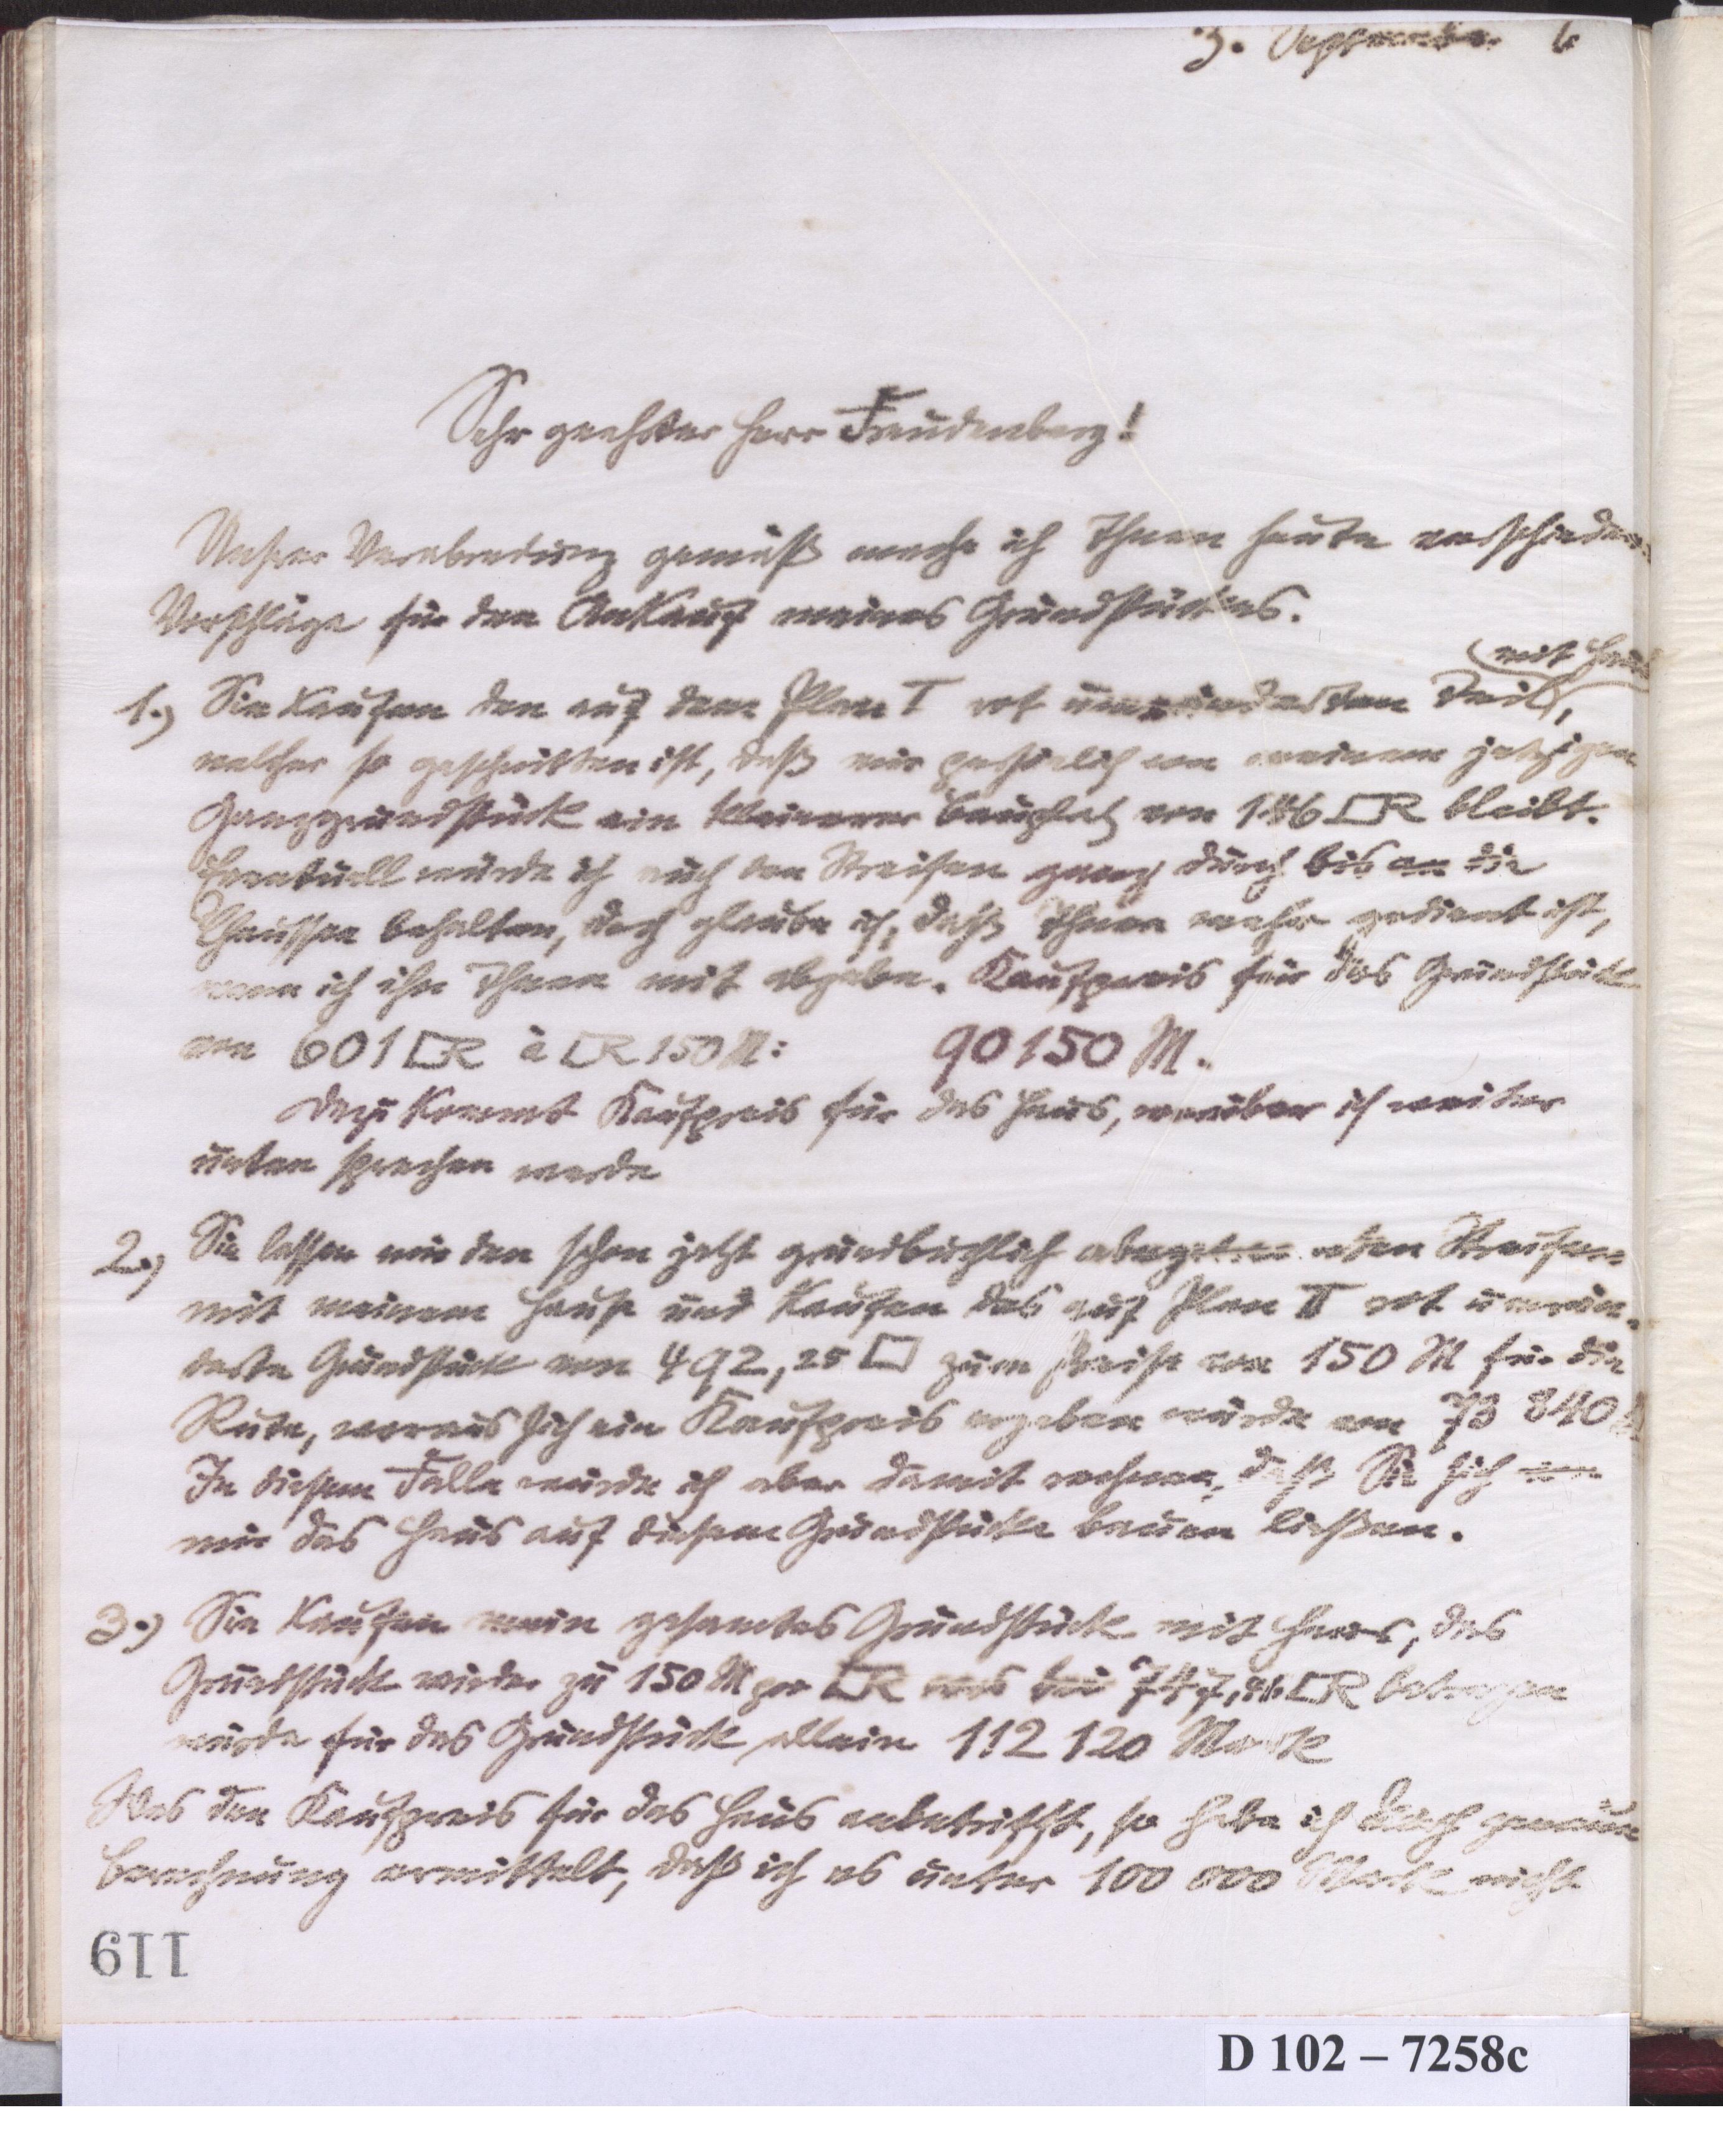 3. September 6
Sehr geehrter Herr Freudenberg!
Unsrer Verabredung gemäß mache ich Ihnen heute verschiedene
Vorschläge für den Ankauf meines Grundstückes.
(mit Haus
1.) Sie kaufen den auf dem Plan I rot umränderten Teil,
welcher so geschnitten ist, daß mir persönlich von meinem jetzigen
Ganzgrundstück ein kleinerer Bauplatz von 146 □R bleibt.
Eventuell würde ich auch den Streifen ganz durch bis an die
Chaussee behalten, doch glaube ich, daß Ihnen mehr gedient ist,
wenn ich ihn Ihnen mit abgebe. Kaufpreis für das Grundstück
von 601 □R à □R 150 M: 90150 M.
Dazu kommt Kaufpreis für das Haus, worüber ich weiter
unten sprechen werde
2.) Sie lassen mir den schon jetzt grundbuchlich Streifen
mit meinem Hause und kaufen das auf Plan II rot umrän-
derte Grundstück von 492,25 □ zum Preise von 150 M für die
Rute, woraus sich ein Kaufpreis ergeben würde von 73 840 M
In diesem Falle würde ich aber damit rechnen, daß Sie sich von
mir das Haus auf diesem Grundstücke bauen ließen.
3.) Sie kaufen mein gesamtes Grundstück mit Haus, das
Grundstück wieder zu 150 M pro □R was bei 747,46 □R betragen
würde für das Grundstück allein 112 120 Mark
Was den Kaufpreis für das Haus anbetrifft, so habe ich nach genauer
Berechnung ermittelt, daß ich es unter 100 000 Mark nicht
119
D 102 – 7258c